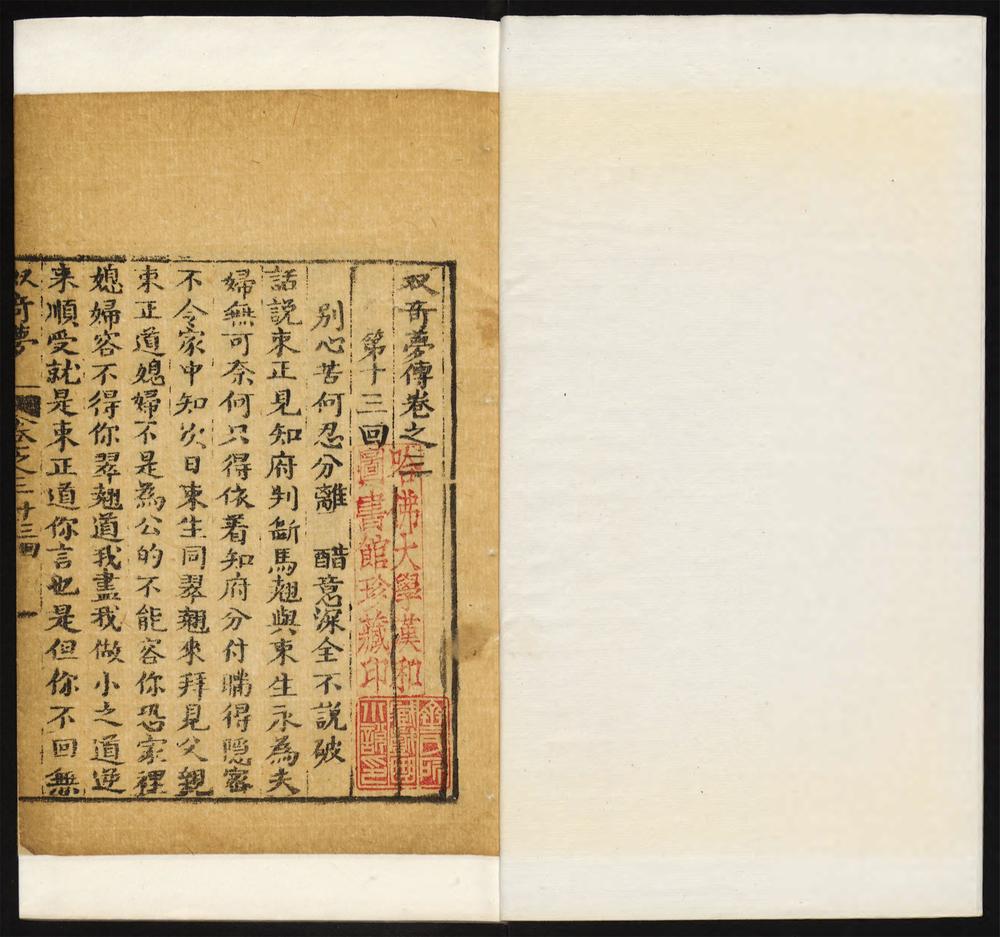 双奇夢傳卷之三
第十三回
別心苦何忍分離　醋意深全不説破
話説束正見知府判斷馬翹與束生永為夫
婦無可奈何只得依着知府分付瞞得隱密
不令家中知次日束生同翠翹來拜見父親
束正道媳婦不是為公的不能容你恐家裡
媳婦容不得你翠翹道我盡我做小之道逆
来順受就是束正道你言也是但你不回無
双奇夢
卷之三 十三回
一
哈佛大學漢和
圖書館珍藏印